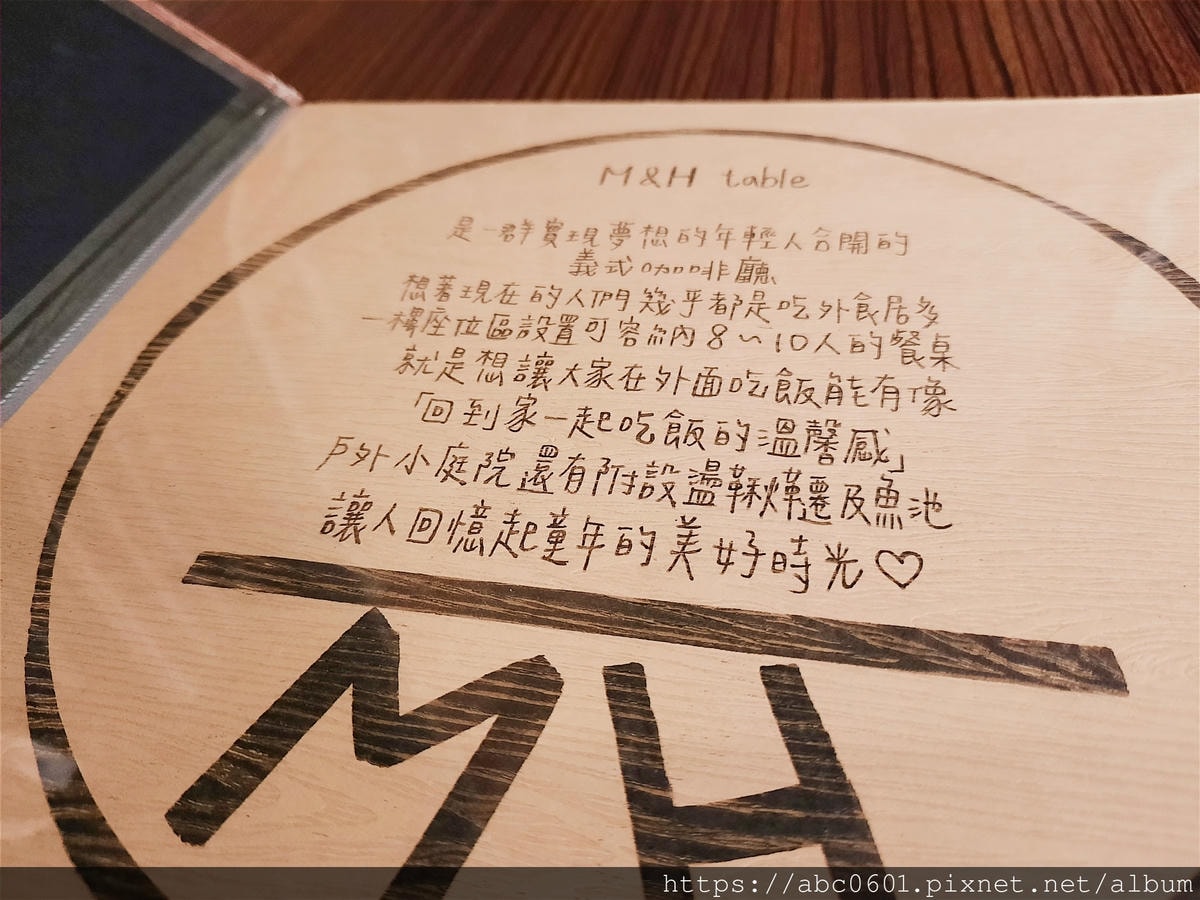 M&H table
是一群實現夢想的年輕人合開的
義式咖啡廳
想著現在的人們幾乎都是吃外食居多
一樓座位區設置可容納8~10人的餐桌
就是想讓大家在外面吃飯能有像
「回到家一起吃飯的溫馨感」
戶外小庭院還有附設盪鞦韆及魚池
讓人回憶起童年的美好時光♡
MH
https://abc0601.pixnet.net/album